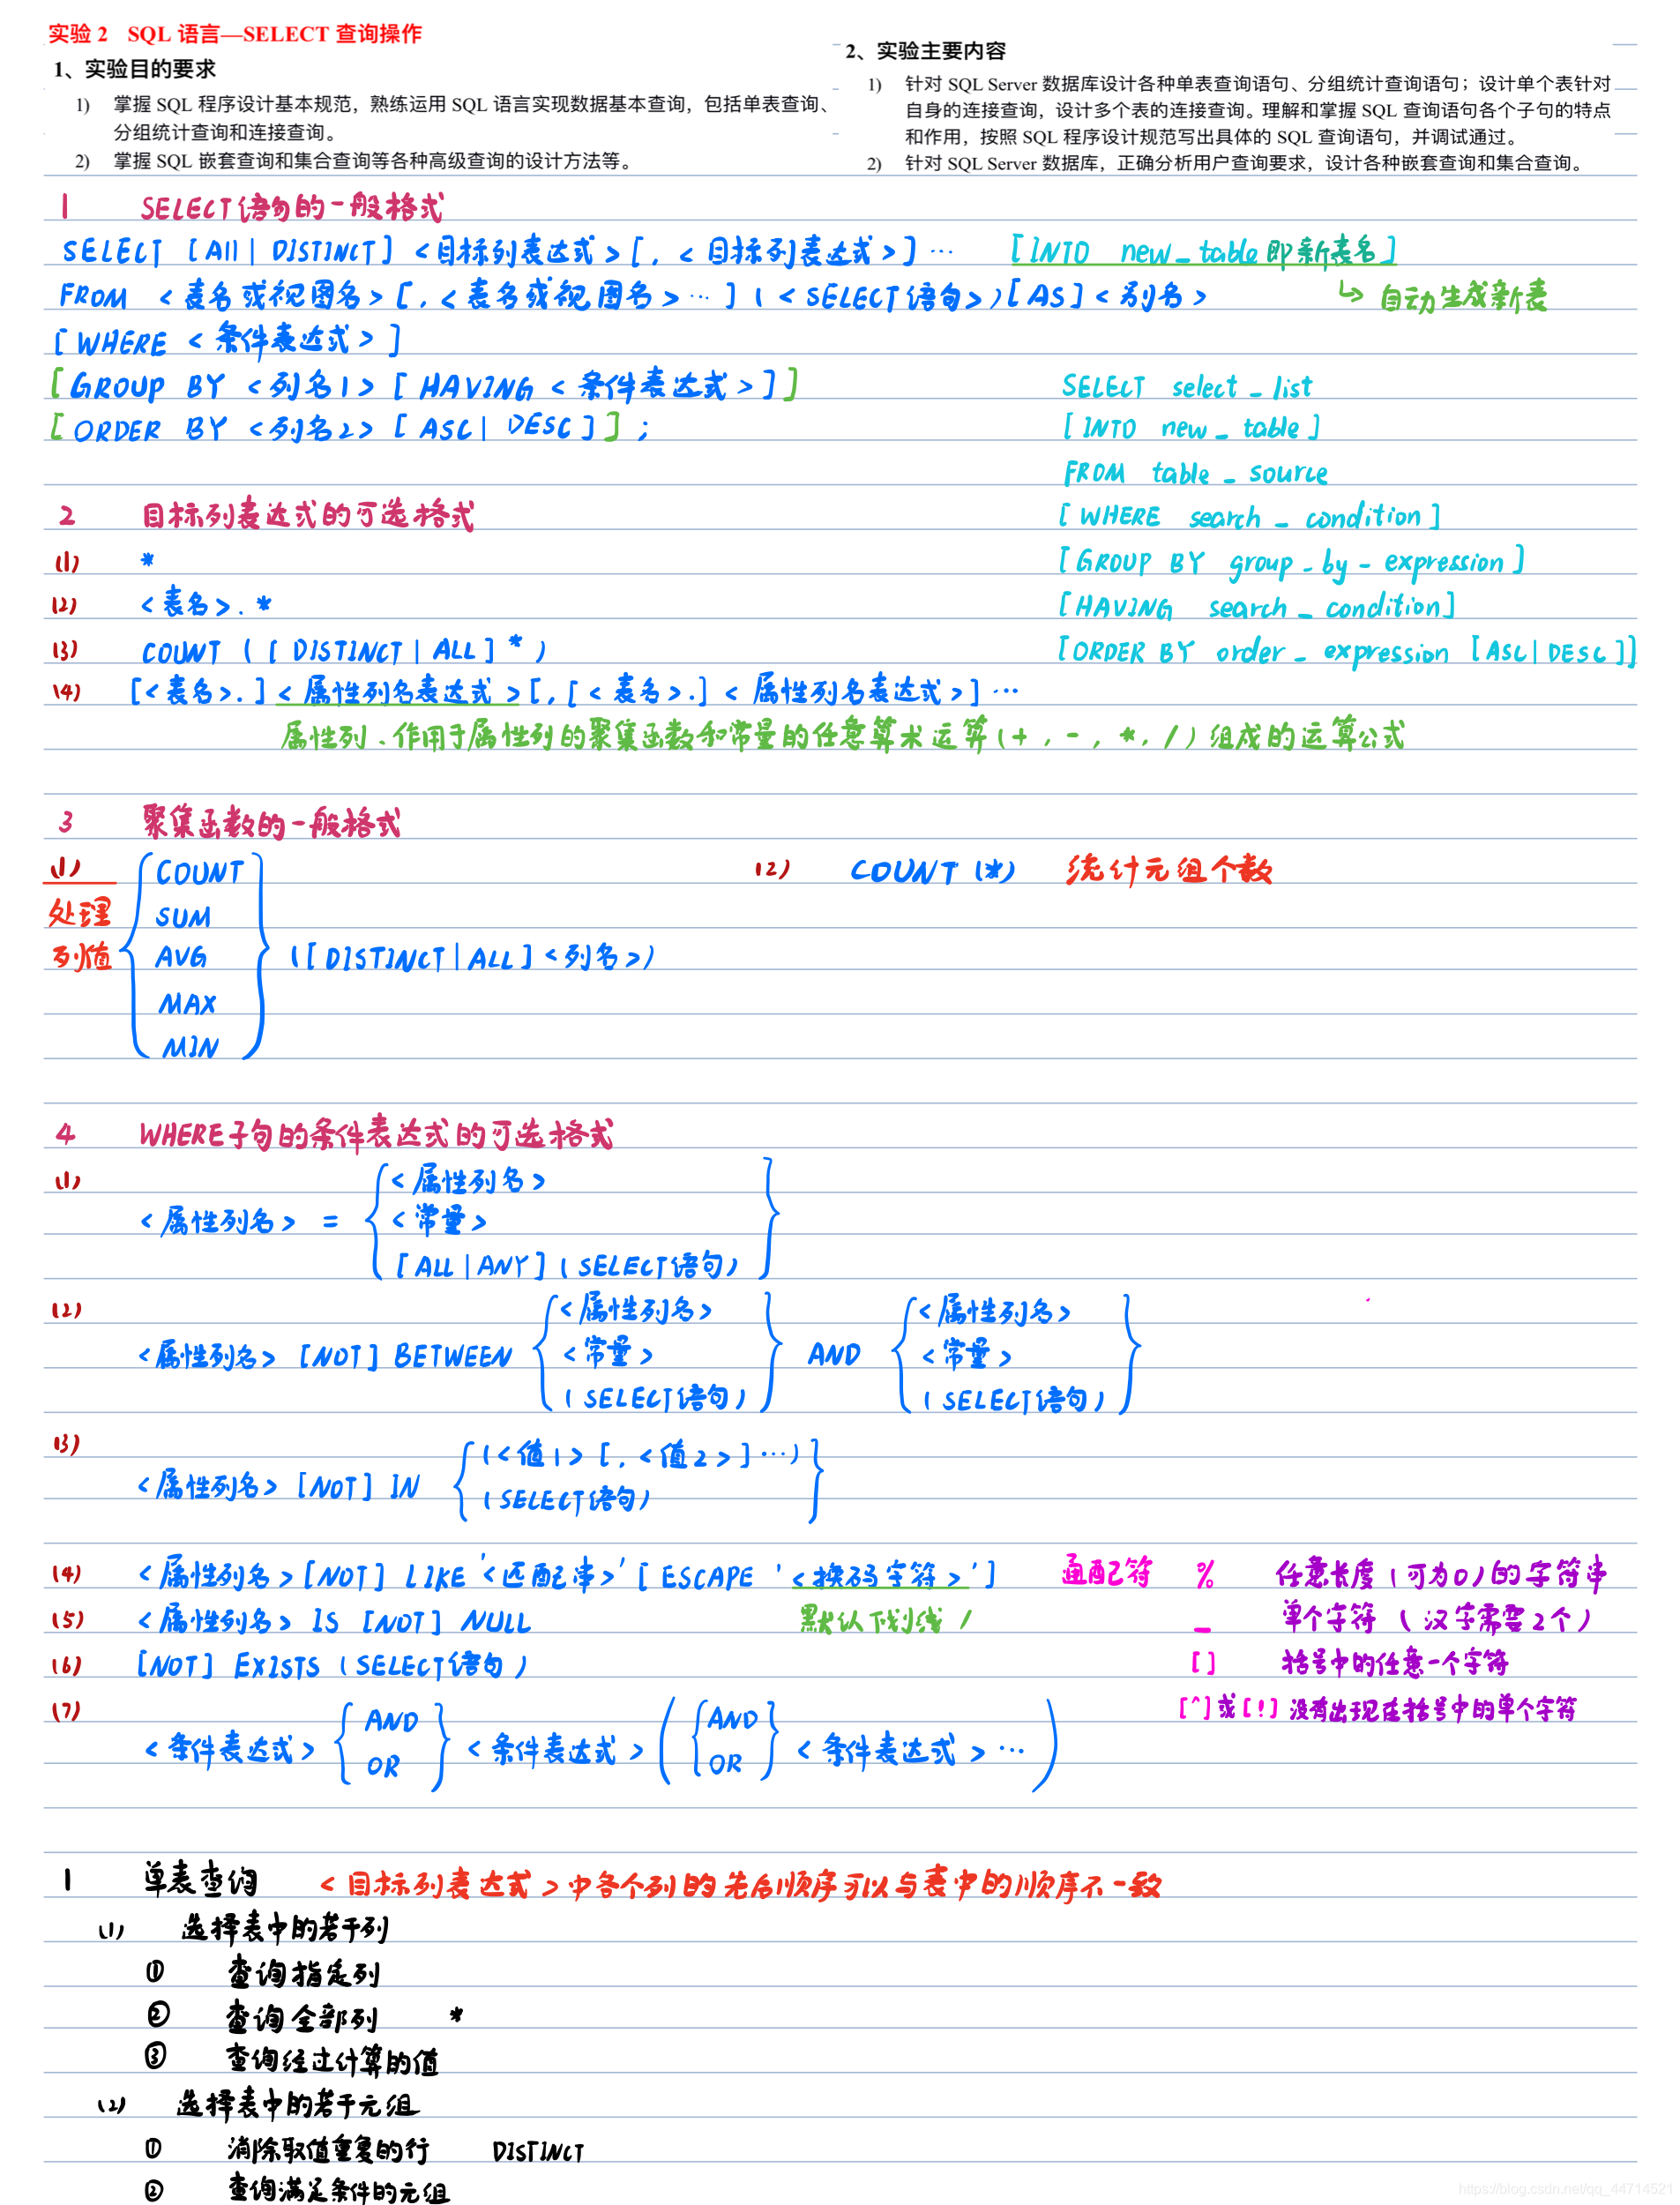 实验 2 SQL 语言—SELECT 查询操作
1、实验目的要求
1) 掌握 SQL 程序设计基本规范，熟练运用 SQL 语言实现数据基本查询，包括单表查询、
分组统计查询和连接查询。
2) 掌握 SQL 嵌套查询和集合查询等各种高级查询的设计方法等。
2、实验主要内容
1) 针对 SQL Server 数据库设计各种单表查询语句、分组统计查询语句；设计单个表针对
自身的连接查询，设计多个表的连接查询。理解和掌握 SQL 查询语句各个子句的特点
和作用，按照 SQL 程序设计规范写出具体的 SQL 查询语句，并调试通过。
2) 针对 SQL Server 数据库，正确分析用户查询要求，设计各种嵌套查询和集合查询。
1 SELECT语句的一般格式
SELECT [All | DISTINCT] <目标列表达式> [, <目标列表达式>] … [INTO new_table 即新表名]
FROM <表名或视图名> [, <表名或视图名> …] | (<SELECT语句>) [AS] <别名>
↳ 自动生成新表
[WHERE <条件表达式>]
[GROUP BY <列名1> [HAVING <条件表达式>]]
[ORDER BY <列名2> [ASC | DESC]];
SELECT select_list
[INTO new_table]
FROM table_source
[WHERE search_condition]
[GROUP BY group-by-expression]
[HAVING search_condition]
[ORDER BY order_expression [ASC | DESC]]
2 目标列表达式的可选格式
(1) *
(2) <表名>.*
(3) COUNT ([DISTINCT | ALL] *)
(4) [<表名>.] <属性列名表达式> [, [<表名>.] <属性列名表达式>] …
属性列、作用于属性列的聚集函数和常量的任意算术运算(+, -, *, /)组成的运算公式
3 聚集函数的一般格式
(1)
处理
列值
COUNT
SUM
AVG
MAX
MIN
([DISTINCT | ALL] <列名>)
(2) COUNT (*) 统计元组个数
4 WHERE子句的条件表达式的可选格式
(1)
<属性列名> =
<属性列名>
<常量>
[ALL | ANY] (SELECT语句)
(2)
<属性列名> [NOT] BETWEEN
<属性列名>
<常量>
(SELECT语句)
AND
<属性列名>
<常量>
(SELECT语句)
(3)
<属性列名> [NOT] IN
(<值1> [, <值2>] …)
(SELECT语句)
(4) <属性列名> [NOT] LIKE '<匹配串>' [ESCAPE '<换码字符>']
默认下划线 /
(5) <属性列名> IS [NOT] NULL
(6) [NOT] EXISTS (SELECT语句)
通配符 % 任意长度 (可为0) 的字符串
_ 单个字符 (汉字需要2个)
[ ] 括号中的任意一个字符
[^] 或 [!] 没有出现在括号中的单个字符
(7)
<条件表达式> { AND
OR } <条件表达式> ( { AND
OR } <条件表达式> … )
1 单表查询 <目标列表达式>中各个列的先后顺序可以与表中的顺序不一致
(1) 选择表中的若干列
① 查询指定列
② 查询全部列 *
③ 查询经过计算的值
(2) 选择表中的若干元组
① 消除取值重复的行 DISTINCT
② 查询满足条件的元组
https://blog.csdn.net/qq_44714521